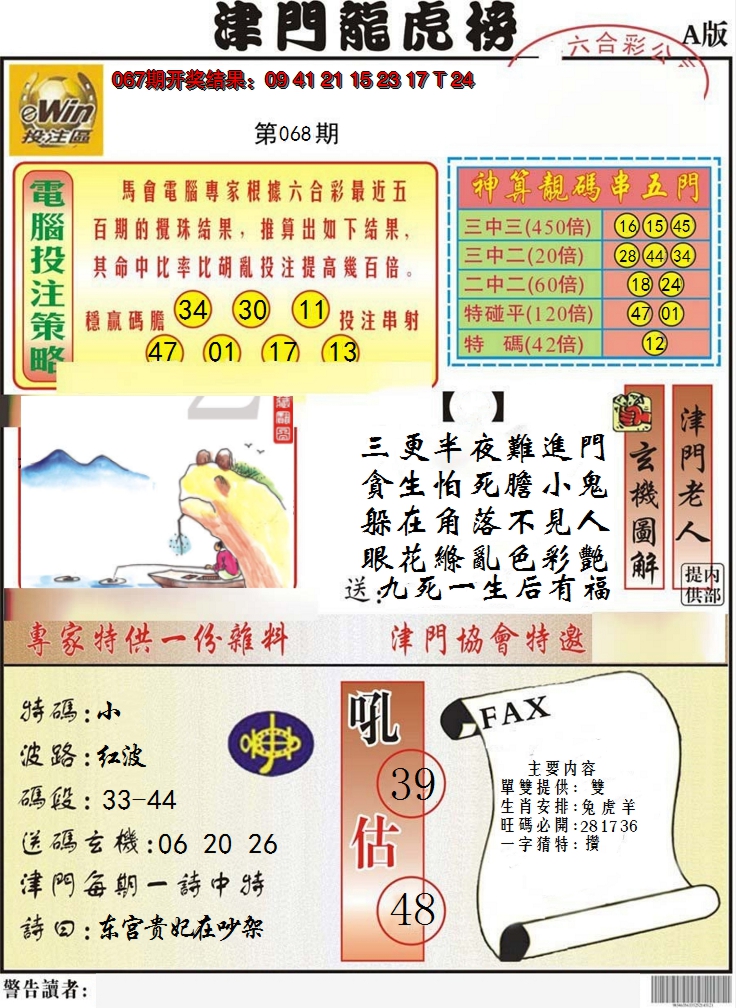 津門龍虎榜
六合彩公
A版
eWin
投注區
067期开奖结果：09 41 21 15 23 17 T 24
第068期
電腦投注策略
馬會電腦專家根據六合彩最近五
百期的攪珠结果，推算出如下结果，
其命中比率比胡亂投注提高幾百倍。
穩贏碼膽 34 30 11 投注串射
47 01 17 13
神算靚码串五門
三中三(450倍) 16 15 45
三中二(20倍) 28 44 34
二中二(60倍) 18 24
特碰平(120倍) 47 01
特 碼(42倍) 12
【 】
三更半夜難進門
貪生怕死膽小鬼
躲在角落不見人
眼花綠亂色彩艷
送：九死一生后有福
玄機圖解
津門老人
内部提供
專家特供一份雜料
津門協會特邀
特碼：小
波路：红波
碼段：33-44
送碼玄機：06 20 26
津門每期一詩中特
詩曰：东宫贵妃在吵架
吼
39
估
48
FAX
主要内容
單雙提供：雙
生肖安排：兔虎羊
旺碼必開：281736
一字猜特：攢
警告讀者：